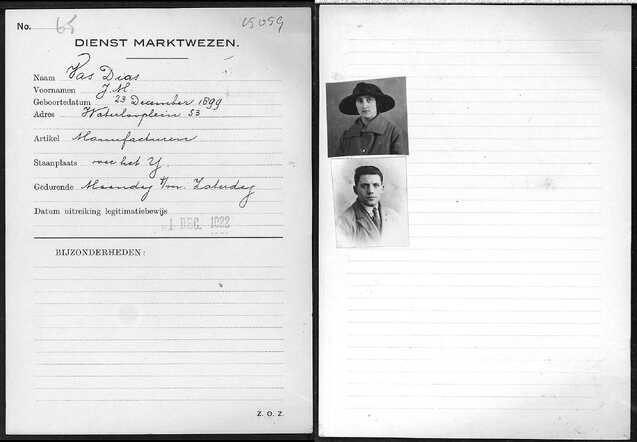 No. 65 05059
DIENST MARKTWEZEN.
Naam Vas Dias
Voornamen J.M
Geboortedatum 23 December 1899
Adres Waterlooplein 53
Artikel Manufacturen
Staanplaats over het Y.
Gedurende Maandag t/m. Zaterdag
Datum uitreiking legitimatiebewijs
1 DEC. 1922
BIJZONDERHEDEN:
Z. O. Z.